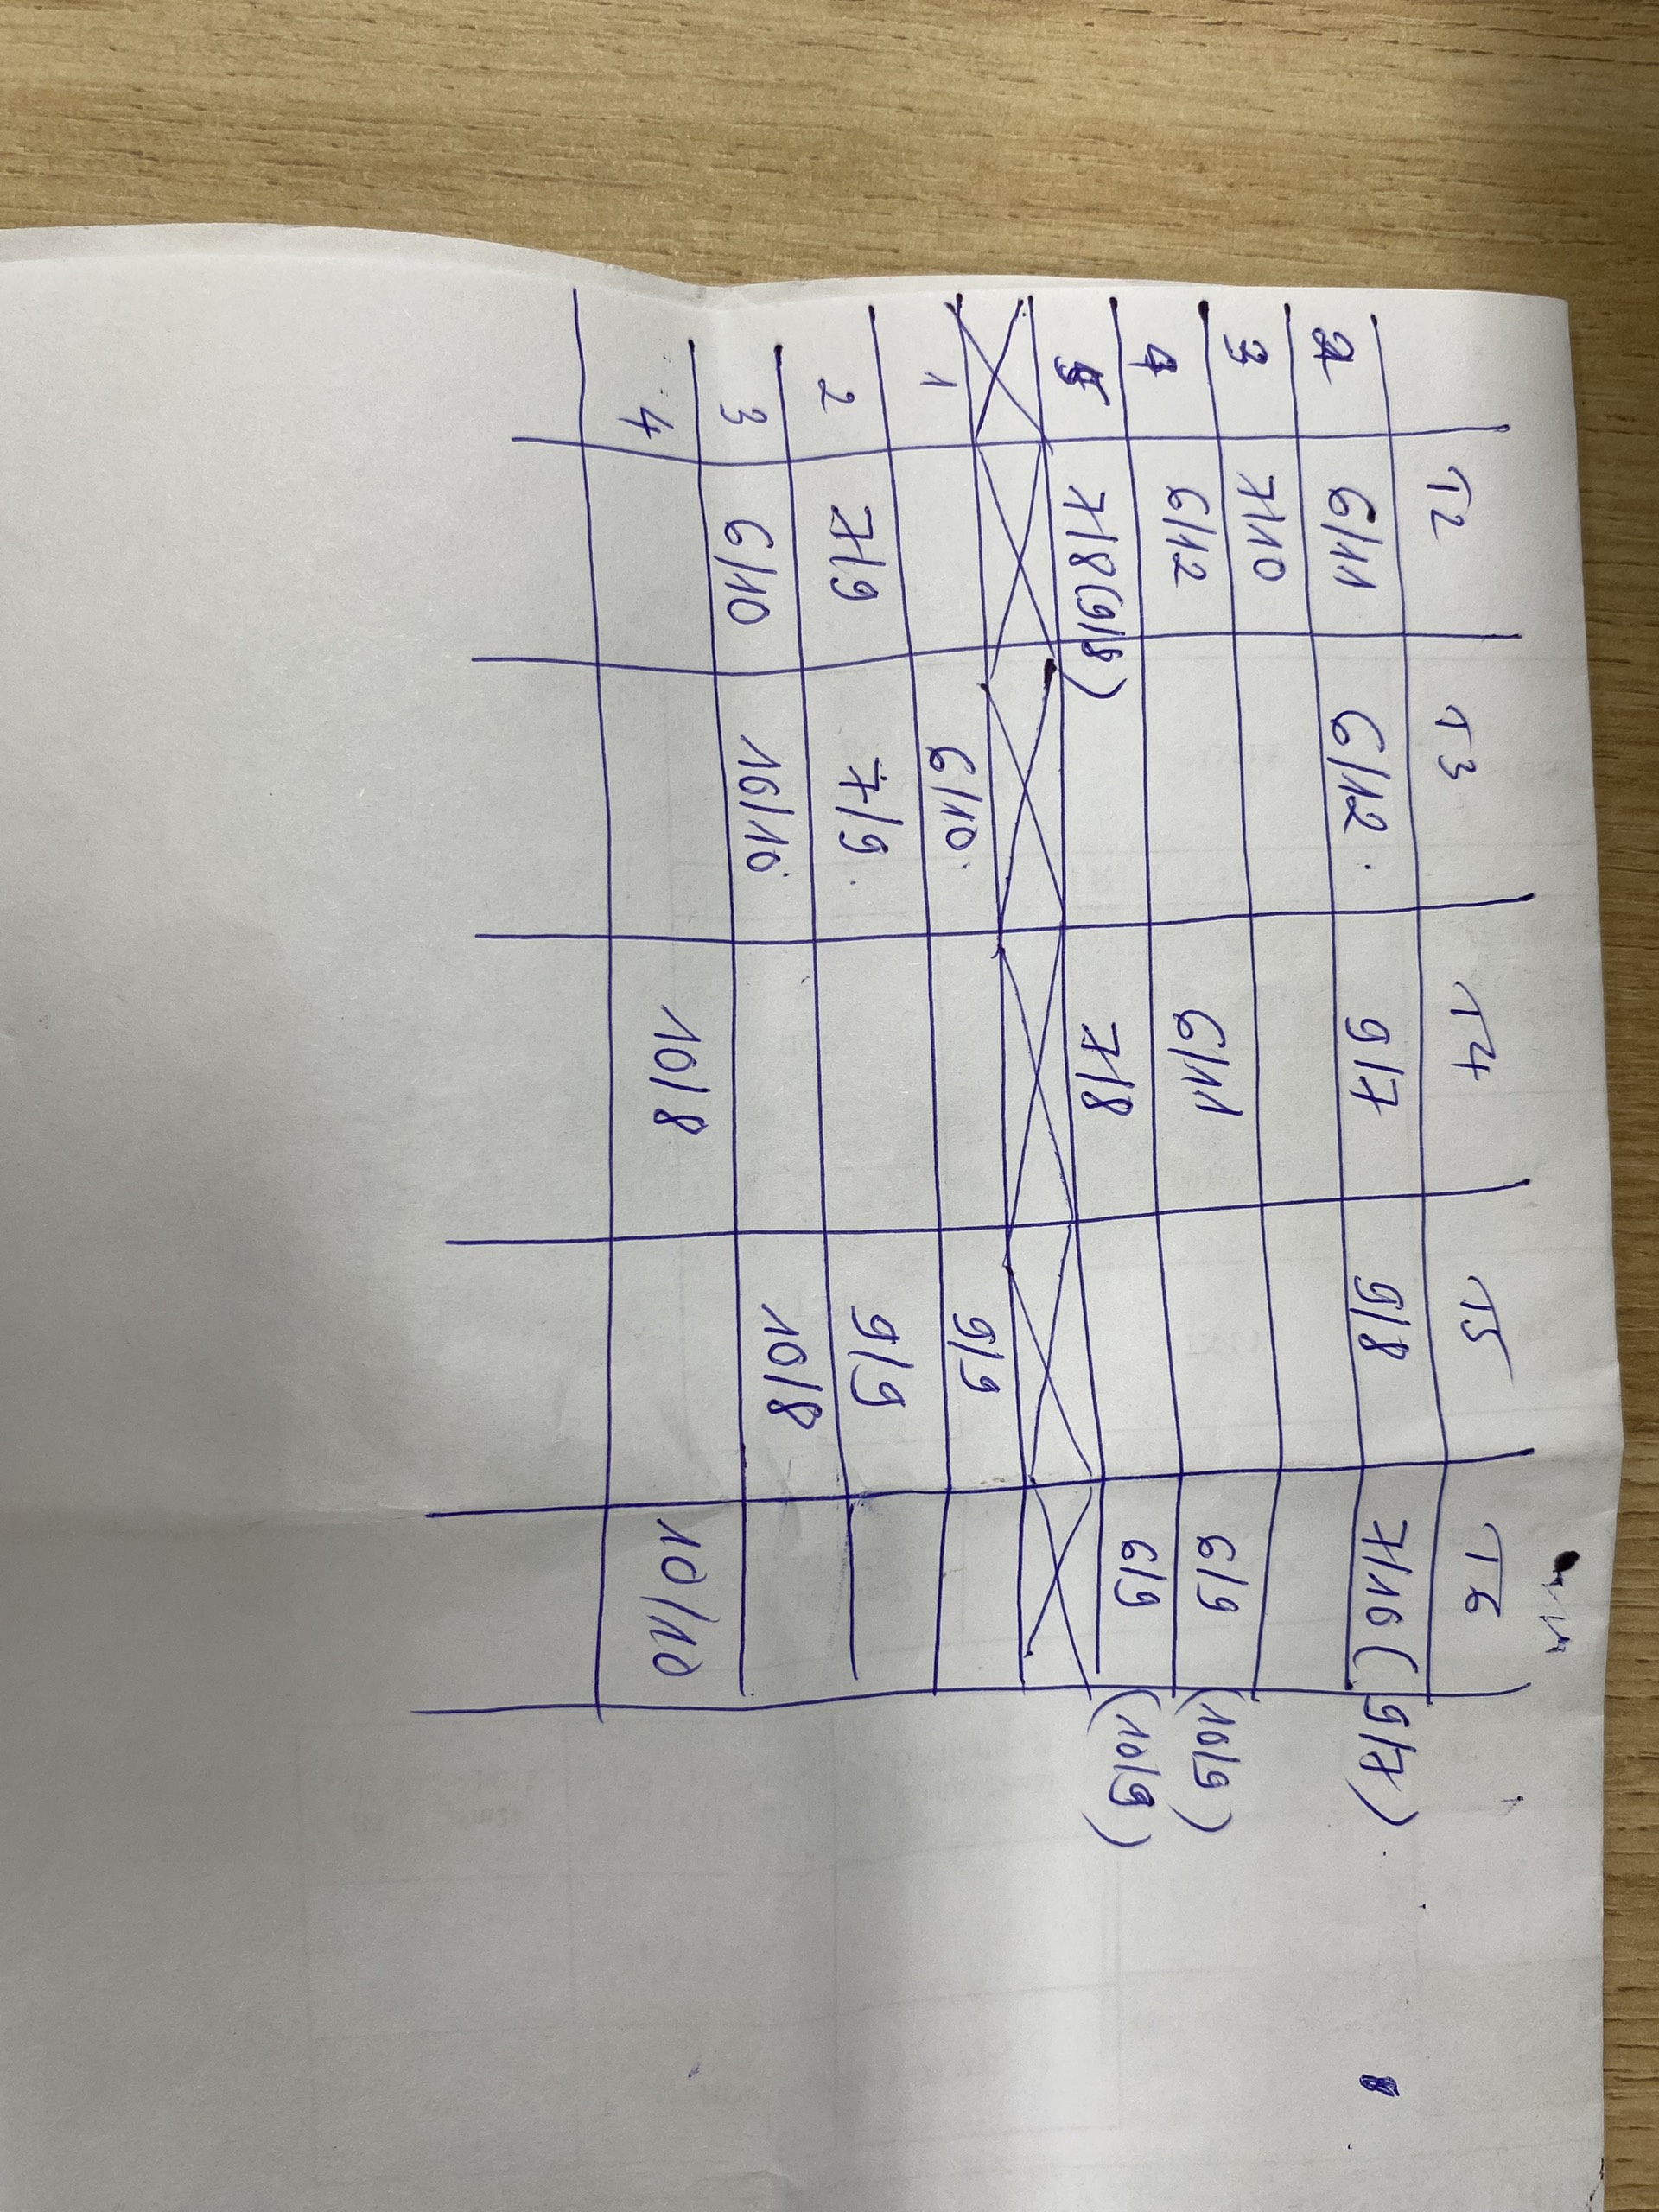 T2 T3 T4 T5 T6
2 6/11 6/12 9/7 9/8 7/10 (9/7)
3 7/10
4 6/12 6/11 6/9 (10/9)
5 7/8 (9/8) 7/8 6/9 (10/9)
1 6/10 9/9
2 7/9 7/9 9/9
3 6/10 10/10 10/8
4 10/8 10/10